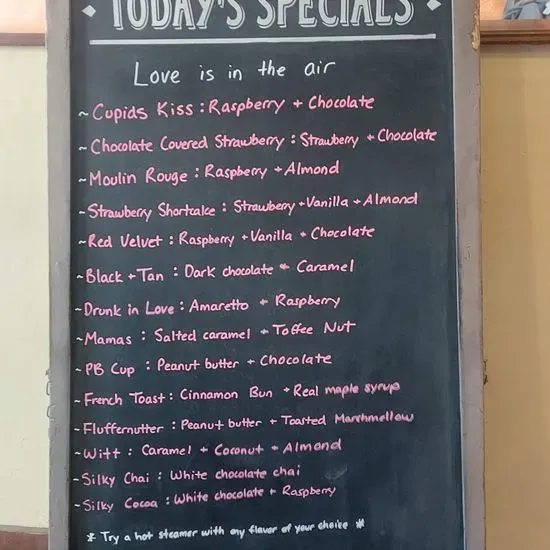 TODAY'S SPECIALS
Love is in the air
~Cupids Kiss : Raspberry + Chocolate
~ Chocolate Covered Strawberry : Strawberry + Chocolate
~ Moulin Rouge : Raspberry + Almond
~ Strawberry Shortcake : Strawberry + Vanilla + Almond
~ Red Velvet : Raspberry + Vanilla + Chocolate
~ Black + Tan : Dark chocolate + Caramel
~ Drunk in Love : Amaretto + Raspberry
~ Mamas : Salted caramel + Toffee Nut
~ PB Cup : Peanut butter + Chocolate
~ French Toast : Cinnamon Bun + Real maple syrup
~ Fluffernutter : Peanut butter + Toasted Marshmellow
~ Witt : Caramel + Coconut + Almond
~ Silky Chai : White chocolate chai
~ Silky Cocoa : White chocolate + Raspberry
* Try a hot steamer with any flavor of your choice *